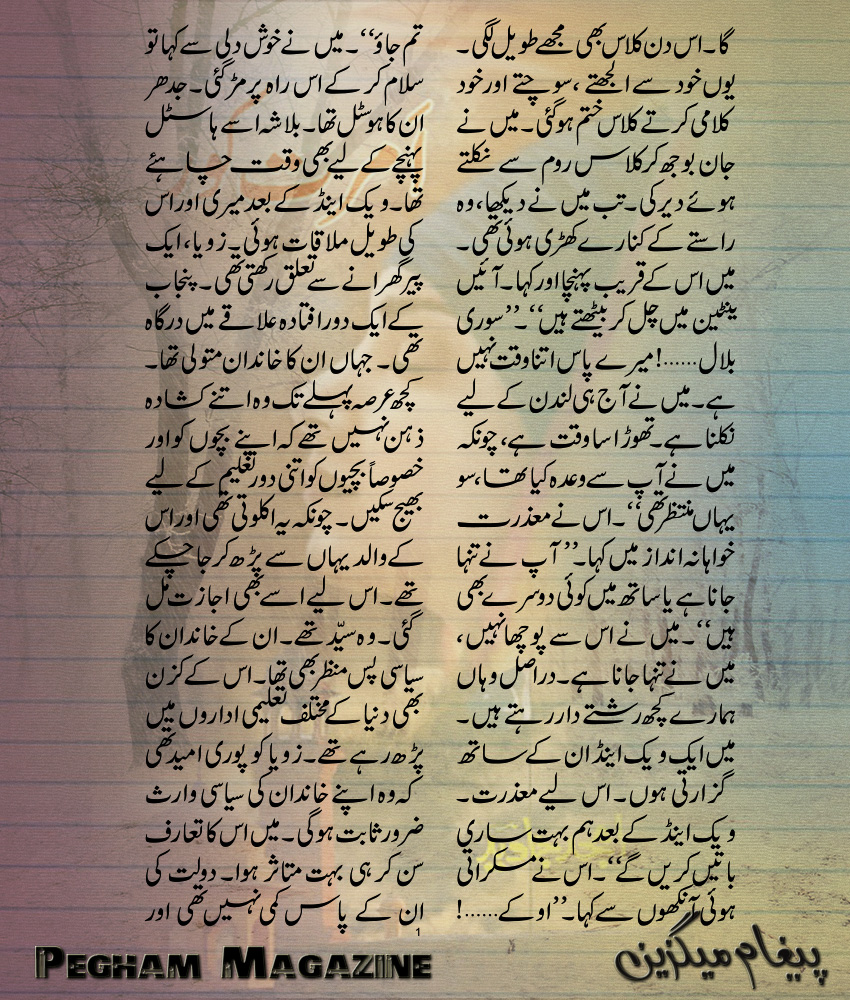 گا۔اس دن کلاس بھی مجھے طویل لگی۔
یوں خود سے الجھتے ،سوچتے اور خود
کلامی کرتے کلاس ختم ہوگئی۔میں نے
جان بوجھ کر کلاس روم سے نکلتے
ہوئے دیر کی۔تب میں نے دیکھا،وہ
راستے کے کنارے کھڑی ہوئی تھی۔
میں اس کے قریب پہنچا اور کہا۔آئیں
ینٹین میں چل کر بیٹھتے ہیں‘‘۔’’سوری
بلال......!میرے پاس اتنا وقت نہیں
ہے۔میں نے آج ہی لندن کے لیے
نکلنا ہے۔تھوڑا سا وقت ہے، چونکہ
میں نے آپ سے وعدہ کیا تھا،سو
یہاں منتظر تھی‘‘۔اس نے معذرت
خواہانہ انداز میں کہا۔’’آپ نے تنہا
جانا ہے یا ساتھ میں کوئی دوسرے بھی
ہیں‘‘۔میں نے اس سے پوچھا نہیں،
میں نے تنہا جانا ہے۔دراصل وہاں
ہمارے کچھ رشتے دار رہتے ہیں۔
میں ایک ویک اینڈ ان کے ساتھ
گزارتی ہوں۔اس لیے معذرت۔
ویک اینڈ کے بعد ہم بہت ساری
باتیں کریں گے‘‘۔اس نے مسکراتی
ہوئی آنکھوں سے کہا۔’’اوکے......!
تم جاؤ‘‘۔میں نے خوش دلی سے کہا تو
سلام کر کے اس راہ پر مڑ گئی۔جدھر
ان کا ہوسٹل تھا۔بلاشہ اسے ہاسٹل
پہنچے کے لیے بھی وقت چاہئے
تھا۔ویک اینڈ کے بعد میری اور اس
کی طویل ملاقات ہوئی۔زویا،ایک
پیر گھرانے سے تعلق رکھتی تھی۔پنجاب
کے ایک دور افتادہ علاقے میں درگاہ
تھی۔جہاں ان کا خاندان متولی تھا۔
کچھ عرصہ پہلے تک وہ اتنے کشادہ
ذہن نہیں تھے کہ اپنے بچوں کو اور
خصوصاً بچیوں کو اتنی دور تعلیم کے لیے
بھیج سکیں۔چونکہ یہ اکلوتی تھی اور اس
کے والد یہاں سے پڑھ کر جا چکے
تھے۔اس لیے اسے بھی اجازت مل
گئی۔وہ سیّد تھے۔ان کے خاندان کا
سیاسی پس منظر بھی تھا۔اس کے کزن
بھی دنیا کے مختلف تعلیمی اداروں میں
پڑھ رہے تھے۔زویا کو پوری امید تھی
کہ وہ اپنے خاندان کی سیاسی وارث
ضرور ثابت ہوگی۔میں اس کا تعارف
سن کر ہی بہت متاثر ہوا۔دولت کی
ان کے پاس کمی نہیں تھی اور
1
PEGHAM MAGAZINE
پیغام میگزین